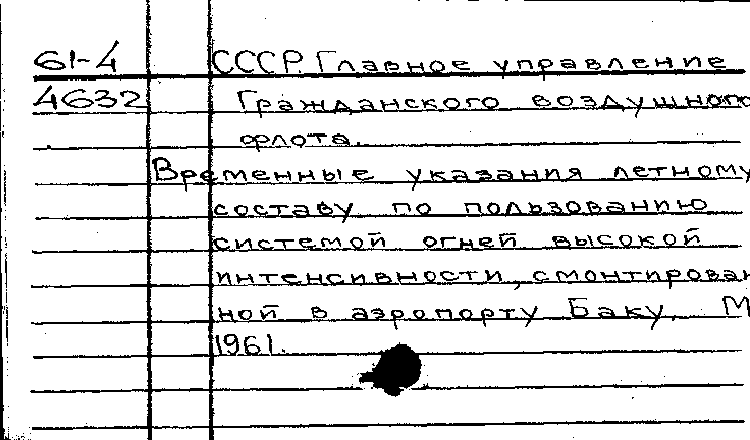 61-4 СССР. Главное управление
4632 Гражданского воздушного
флота.
Временные указания летному
составу по пользованию
системой огней высокой
интенсивности, смонтирован
ной в аэропорту Баку. М
1961.